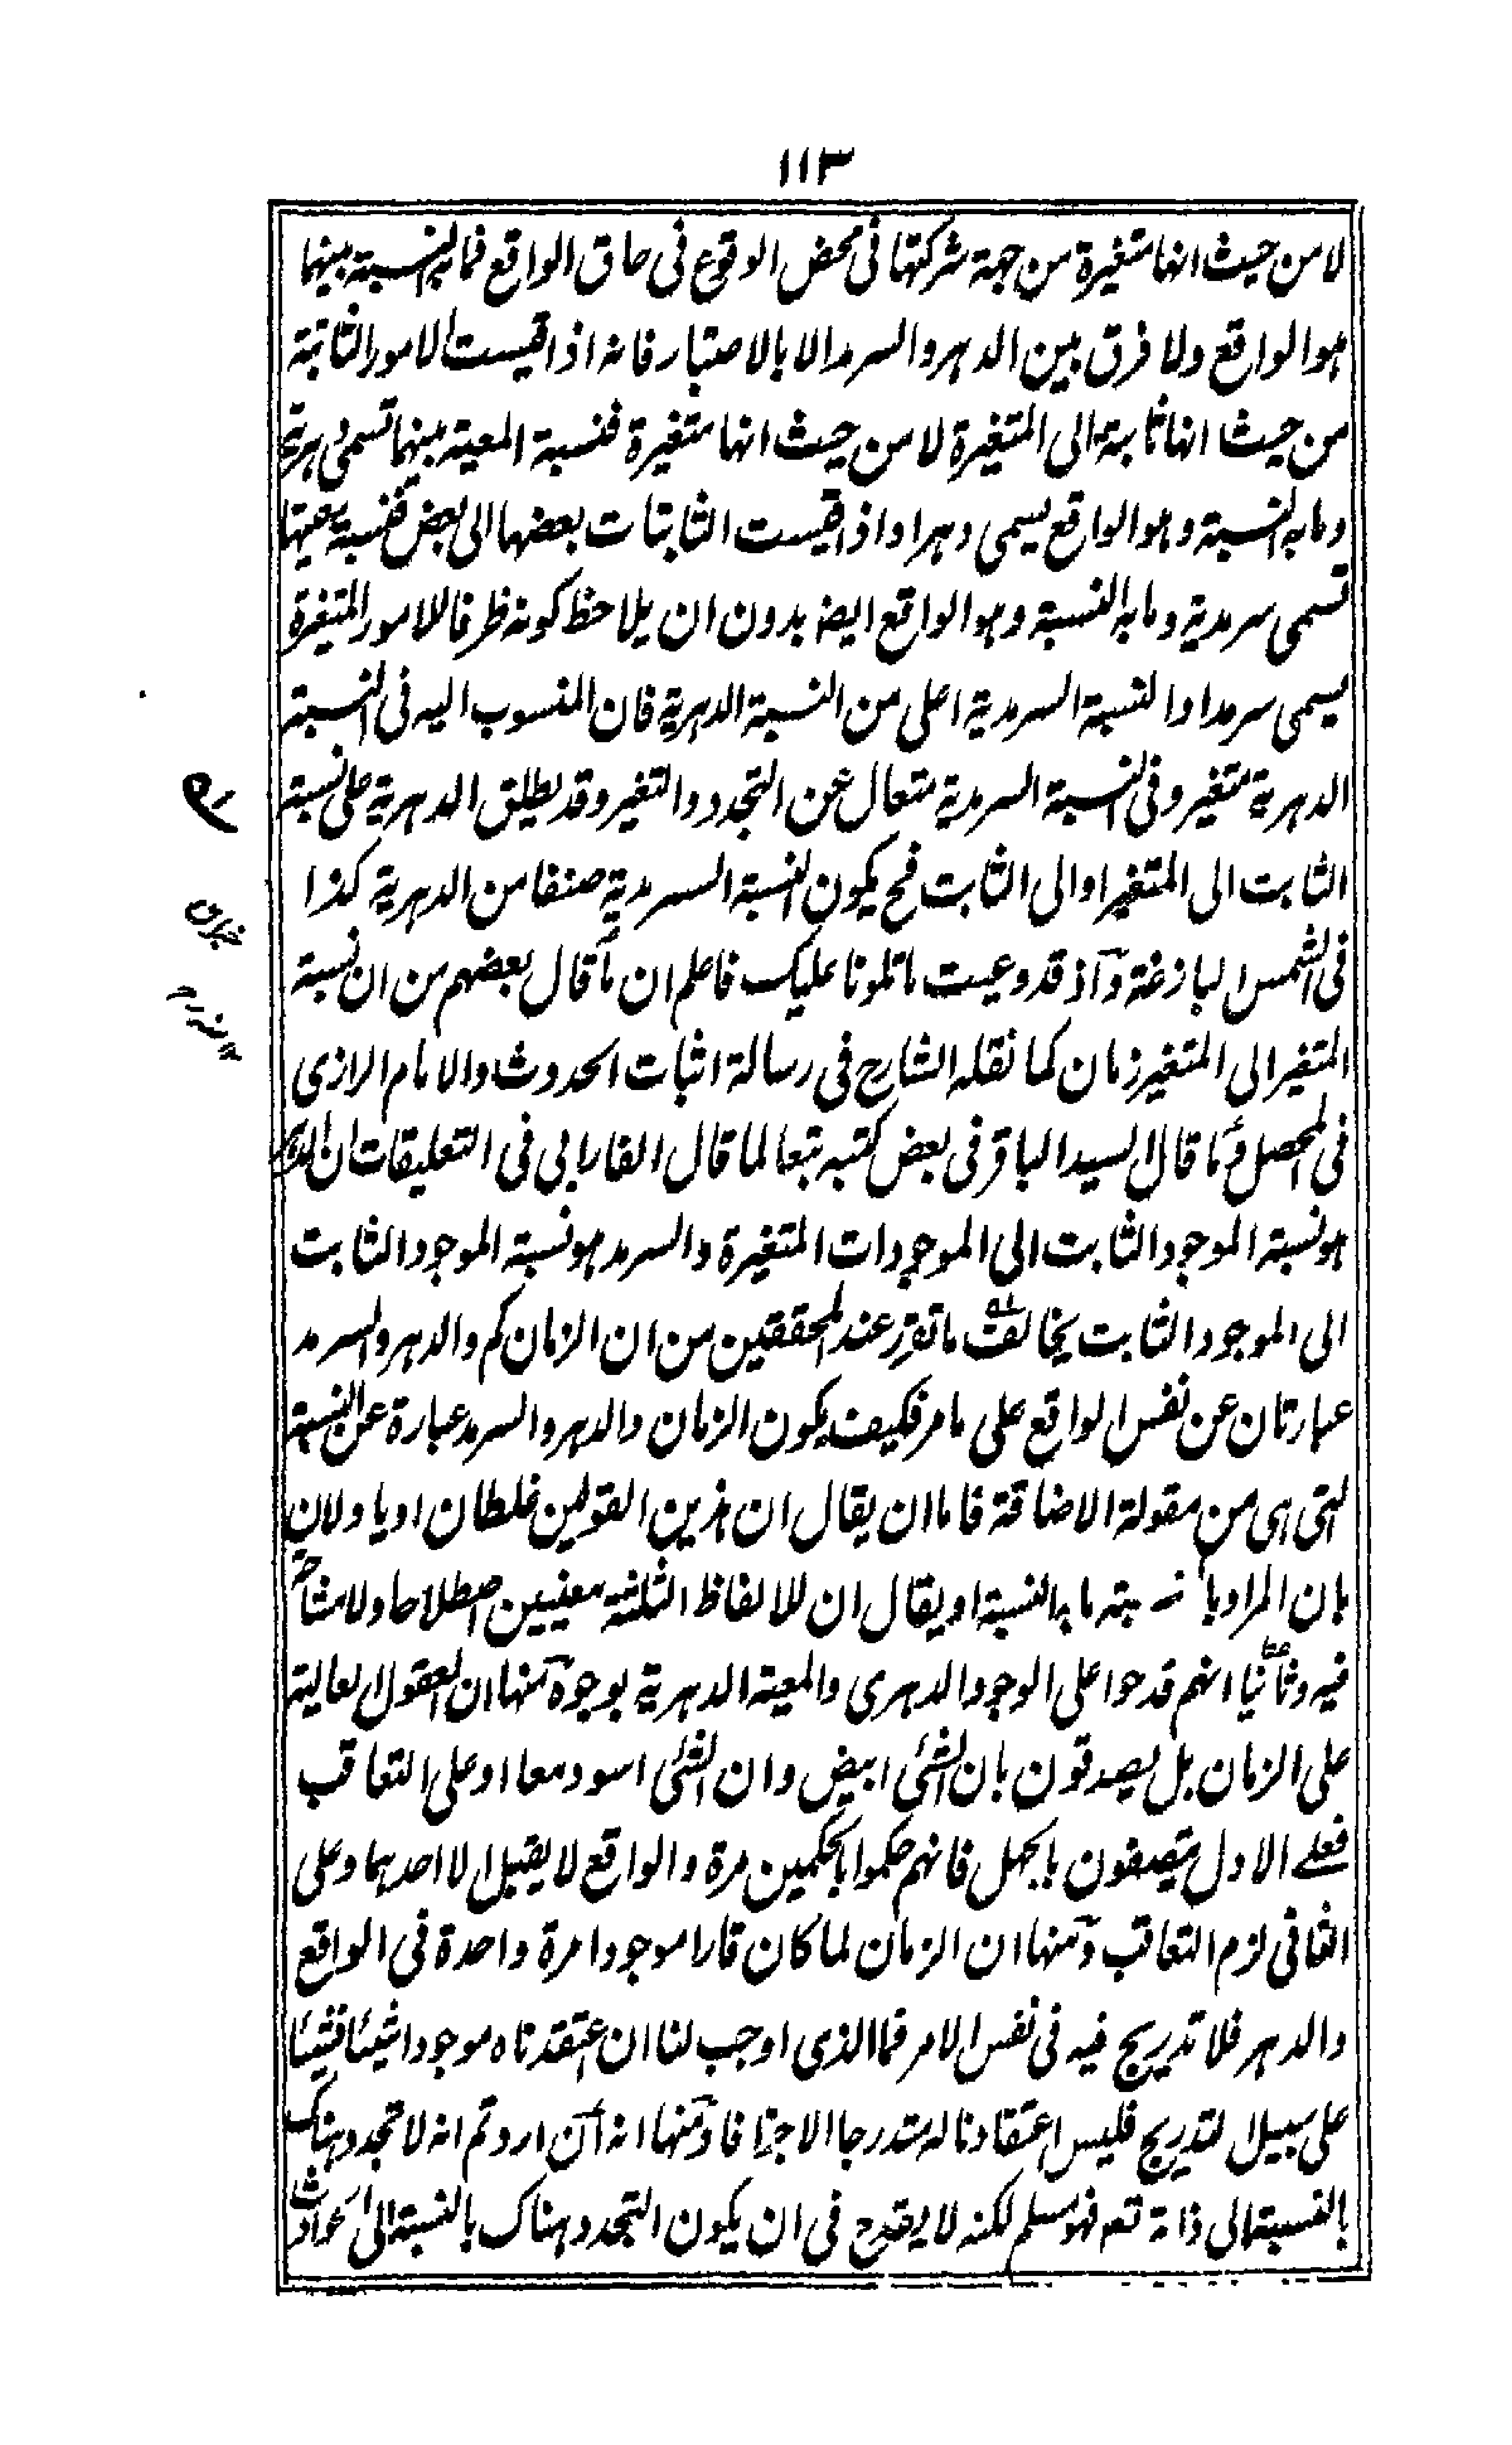 ١١٣
لا من حيث انها متغيرة من جهة شركتها فى محض الوقوع فى حاق الواقع فما به النسبة بينهما
هو الواقع ولا فرق بين الدهر والسرمد الا بالاعتبار فانه اذا قيست الامور الثابتة
من حيث انها ثابتة الى المتغيرة لا من حيث انها متغيرة فنسبة المعية بينهما تسمى دهرية
وما به النسبة وهو الواقع يسمى دهرا واذا قيست الثابتات بعضها الى بعض فنسبة معيتها
تسمى سرمدية وما به النسبة وهو الواقع ايضا بدون ان يلاحظ كونه ظرفا للامور المتغيرة
يسمى سرمدا والنسبة السرمدية اعلى من النسبة الدهرية فان المنسوب اليه فى النسبة
الدهرية متغير وفى النسبة السرمدية متعال عن التجدد والتغير وقد يطلق الدهرية على نسبة
الثابت الى المتغير او الى الثابت فح يكون النسبة السرمدية صنفا من الدهرية كذا
فى الشمس البازغة وآذ قد وعيت ما تلونا عليك فاعلم ان ما قال بعضهم من ان نسبة
المتغير الى المتغير زمان كما نقله الشارح فى رسالة اثبات الحدوث والامام الرازى
فى المحصل وما قال السيد الباقر فى بعض كتبه تبعا لما قال الفارابى فى التعليقات ان الدهر
هو نسبة الموجود الثابت الى الموجودات المتغيرة والسرمد هو نسبة الموجود الثابت
الى الموجود الثابت يخالف ما تقرر عند المحققين من ان الزمان كم والدهر والسرمد
عبارتان عن نفس الواقع على ما مر فكيف يكون الزمان والدهر والسرمد عبارة عن النسبة
التى هى من مقولة الاضافة فاما ان يقال ان هذين القولين غلطان او ياولان
بان المراد بالنسبة ما به النسبة او يقال ان للالفاظ الثلثة معنيين اصطلاحا ولا مشاحة
فيه وثانيا انهم قدحوا على الوجود الدهرى والمعية الدهرية بوجوه منها ان العقول العالية
على الزمان بل يصدقون بان الشئ ابيض وان الشئ اسود معا او على التعاقب
فعلے الاول يتصفون بالجهل فانهم حكموا بالحكمين مرة والواقع لا يقبل الا احدهما وعلى
الثانى لزم التعاقب ومنها ان الزمان لما كان قارا موجودا مرة واحدة فى الواقع
والدهر فلا تدريج فيه فى نفس الامر فما الذى اوجب لنا ان اعتقدناه موجودا شيئا فشيئا
على سبيل التدريج فليس اعتقادنا له متدرجا الا جزافا ومنها انه ان اردتم انه لا تجدد هناك
بالنسبة الى ذاته تعم فهو مسلم لكنه لا يقدح فى ان يكون التجدد هناك بالنسبة الى الحوادث